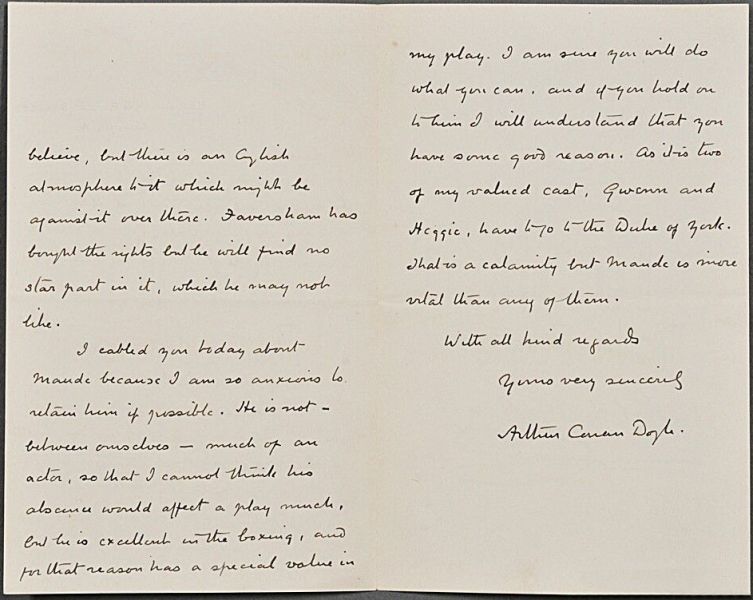 believe, but there is an English
atmosphere to it which might be
against it over there. Faversham has
bought the rights but he will find no
star part in it, which he may not
like.
I cabled you today about
Maude because I am so anxious to
retain him if possible. He is not –
between ourselves – much of an
actor, so that I cannot think his
absence would affect a play much,
but he is excellent in the boxing, and
for that reason has a special value in
my play. I am sure you will do
what you can. and if you hold on
to him I will understand that you
have some good reason. As it is two
of my valued cast, Gwenn and
Heggie, have to go to the Duke of York.
That is a calamity but Maude is more
vital than any of them.
With all kind regards
Yours very sincerely
Arthur Conan Doyle.